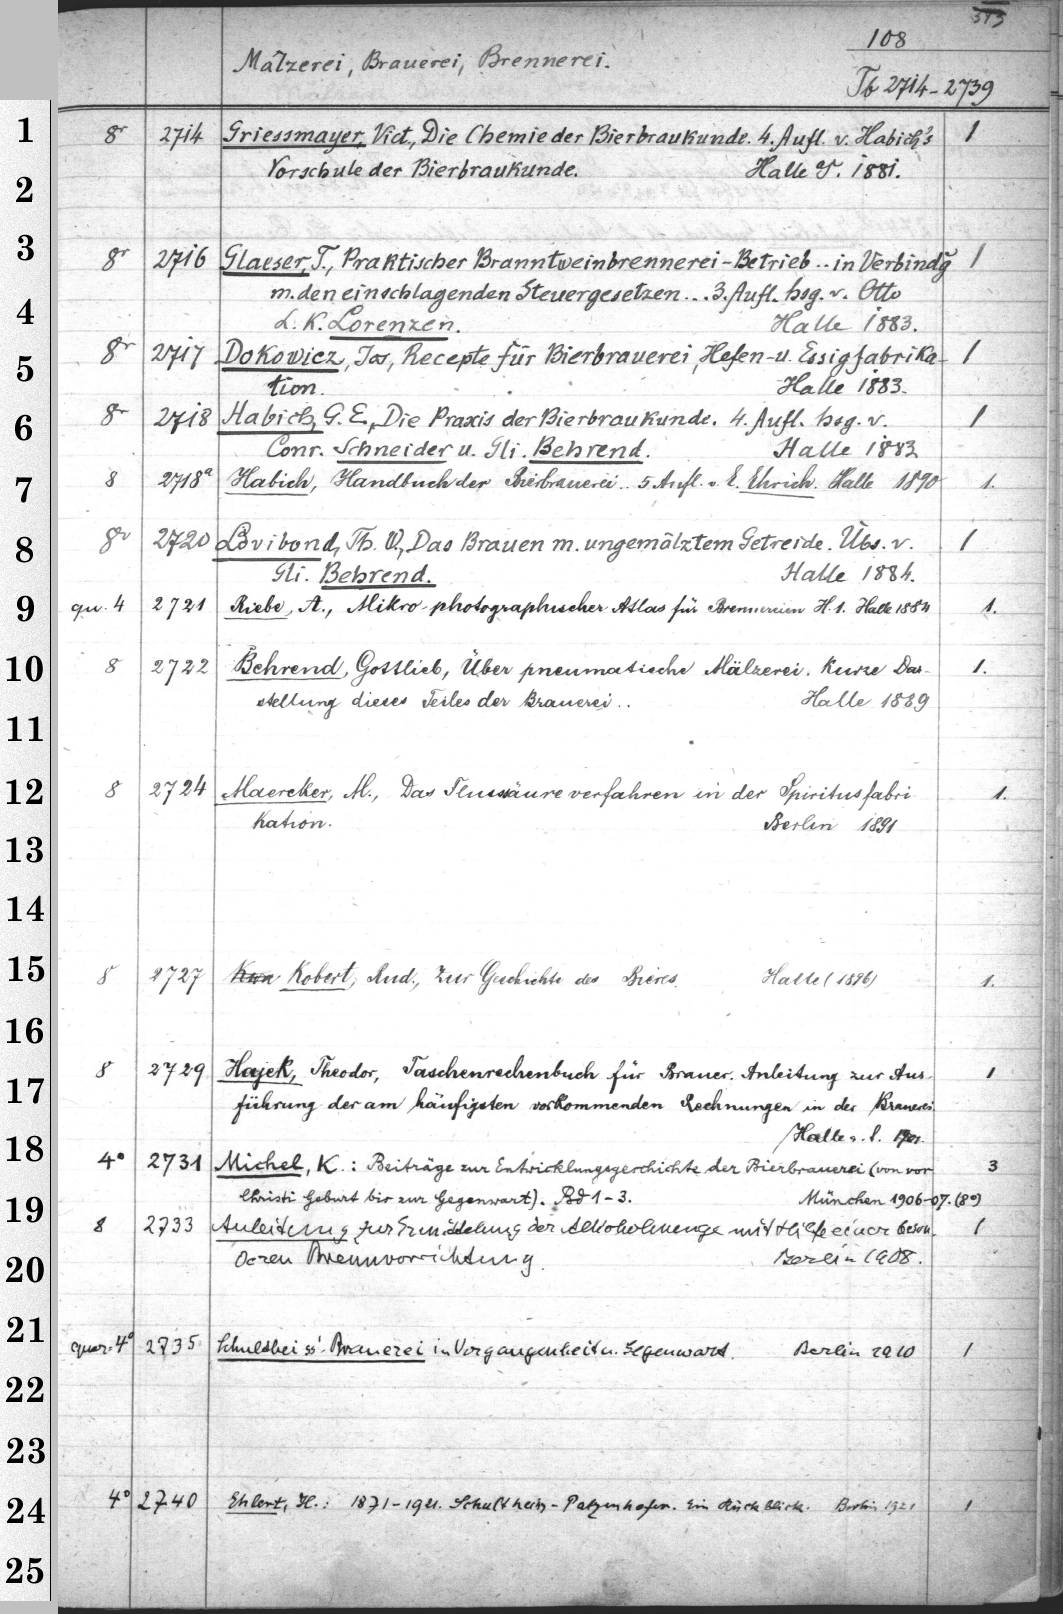 313
108
Mälzerei, Brauerei, Brennerei.
Tb 2714-2739
1 8r 2714 Griessmayer, Vict., Die Chemie der Bierbraukunde. 4. Aufl. v. Habich's 1
2 Vorschule der Bierbraukunde. Halle 1881.
3 8r 2716 Glaeser, T., Praktischer Branntweinbrennerei-Betrieb .. in Verbindg 1
4 m. den einschlagenden Steuergesetzen ... 3. Aufl. hsg. v. Otto
L. K. Lorenzen. Halle 1883.
5 8r 2717 Dokowicz, Jos, Recepte für Bierbrauerei, Hefen- u. Essigfabrika- 1
tion. Halle 1883.
6 8r 2718 Habich, G. E., Die Praxis der Bierbraukunde. 4. Aufl. hsg. v. 1
Conr. Schneider u. Gli. Behrend. Halle 1883
7 8 2718a Habich, Handbuch der Bierbrauerei .. 5 Aufl. v. E. Ehrich. Halle 1890 1.
8 8r 2720 Lovibond, Th. W., Das Brauen m. ungemälztem Getreide. Übs. v. 1
Gli. Behrend. Halle 1884.
9 qu. 4 2721 Riebe, A., Mikro-photographischer Atlas für Brennereien H. 1. Halle 1884 1.
10 8 2722 Behrend, Gottlieb, Über pneumatische Mälzerei. Kurze Dar- 1.
stellung dieses Teiles der Brauerei .. Halle 1889
11
12 8 2724 Maercker, M., Das Flusssäureverfahren in der Spiritusfabri 1.
kation. Berlin 1891
13
14
15 8 2727 Kobert, Rud., Zur Geschichte des Bieres. Halle (1896) 1.
16
8 2729 Hajek, Theodor, Taschenrechenbuch für Brauer. Anleitung zur Aus- 1
17 führung der am häufigsten vorkommenden Rechnungen in der Brauerei.
Halle a. S. 1901.
18 4° 2731 Michel, K.: Beiträge zur Entwicklungsgeschichte der Bierbrauerei (von vor 3
Christi Geburt bis zur Gegenwart). Bd 1-3. München 1906-07. (8°)
19 8 2733 Anleitung zur Ermittelung der Alkoholmenge mit Hilfe einer beson- 1
20 deren Brennvorrichtung. Berlin 1908.
21 quer-4° 2735 Schultheiss'-Brauerei in Vergangenheit u. Gegenwart. Berlin 1910 1
22
23
24 4° 2740 Ehlert, H.: 1871-1921. Schultheiss-Patzenhofer. Ein Rückblick. Berlin 1921 1
25